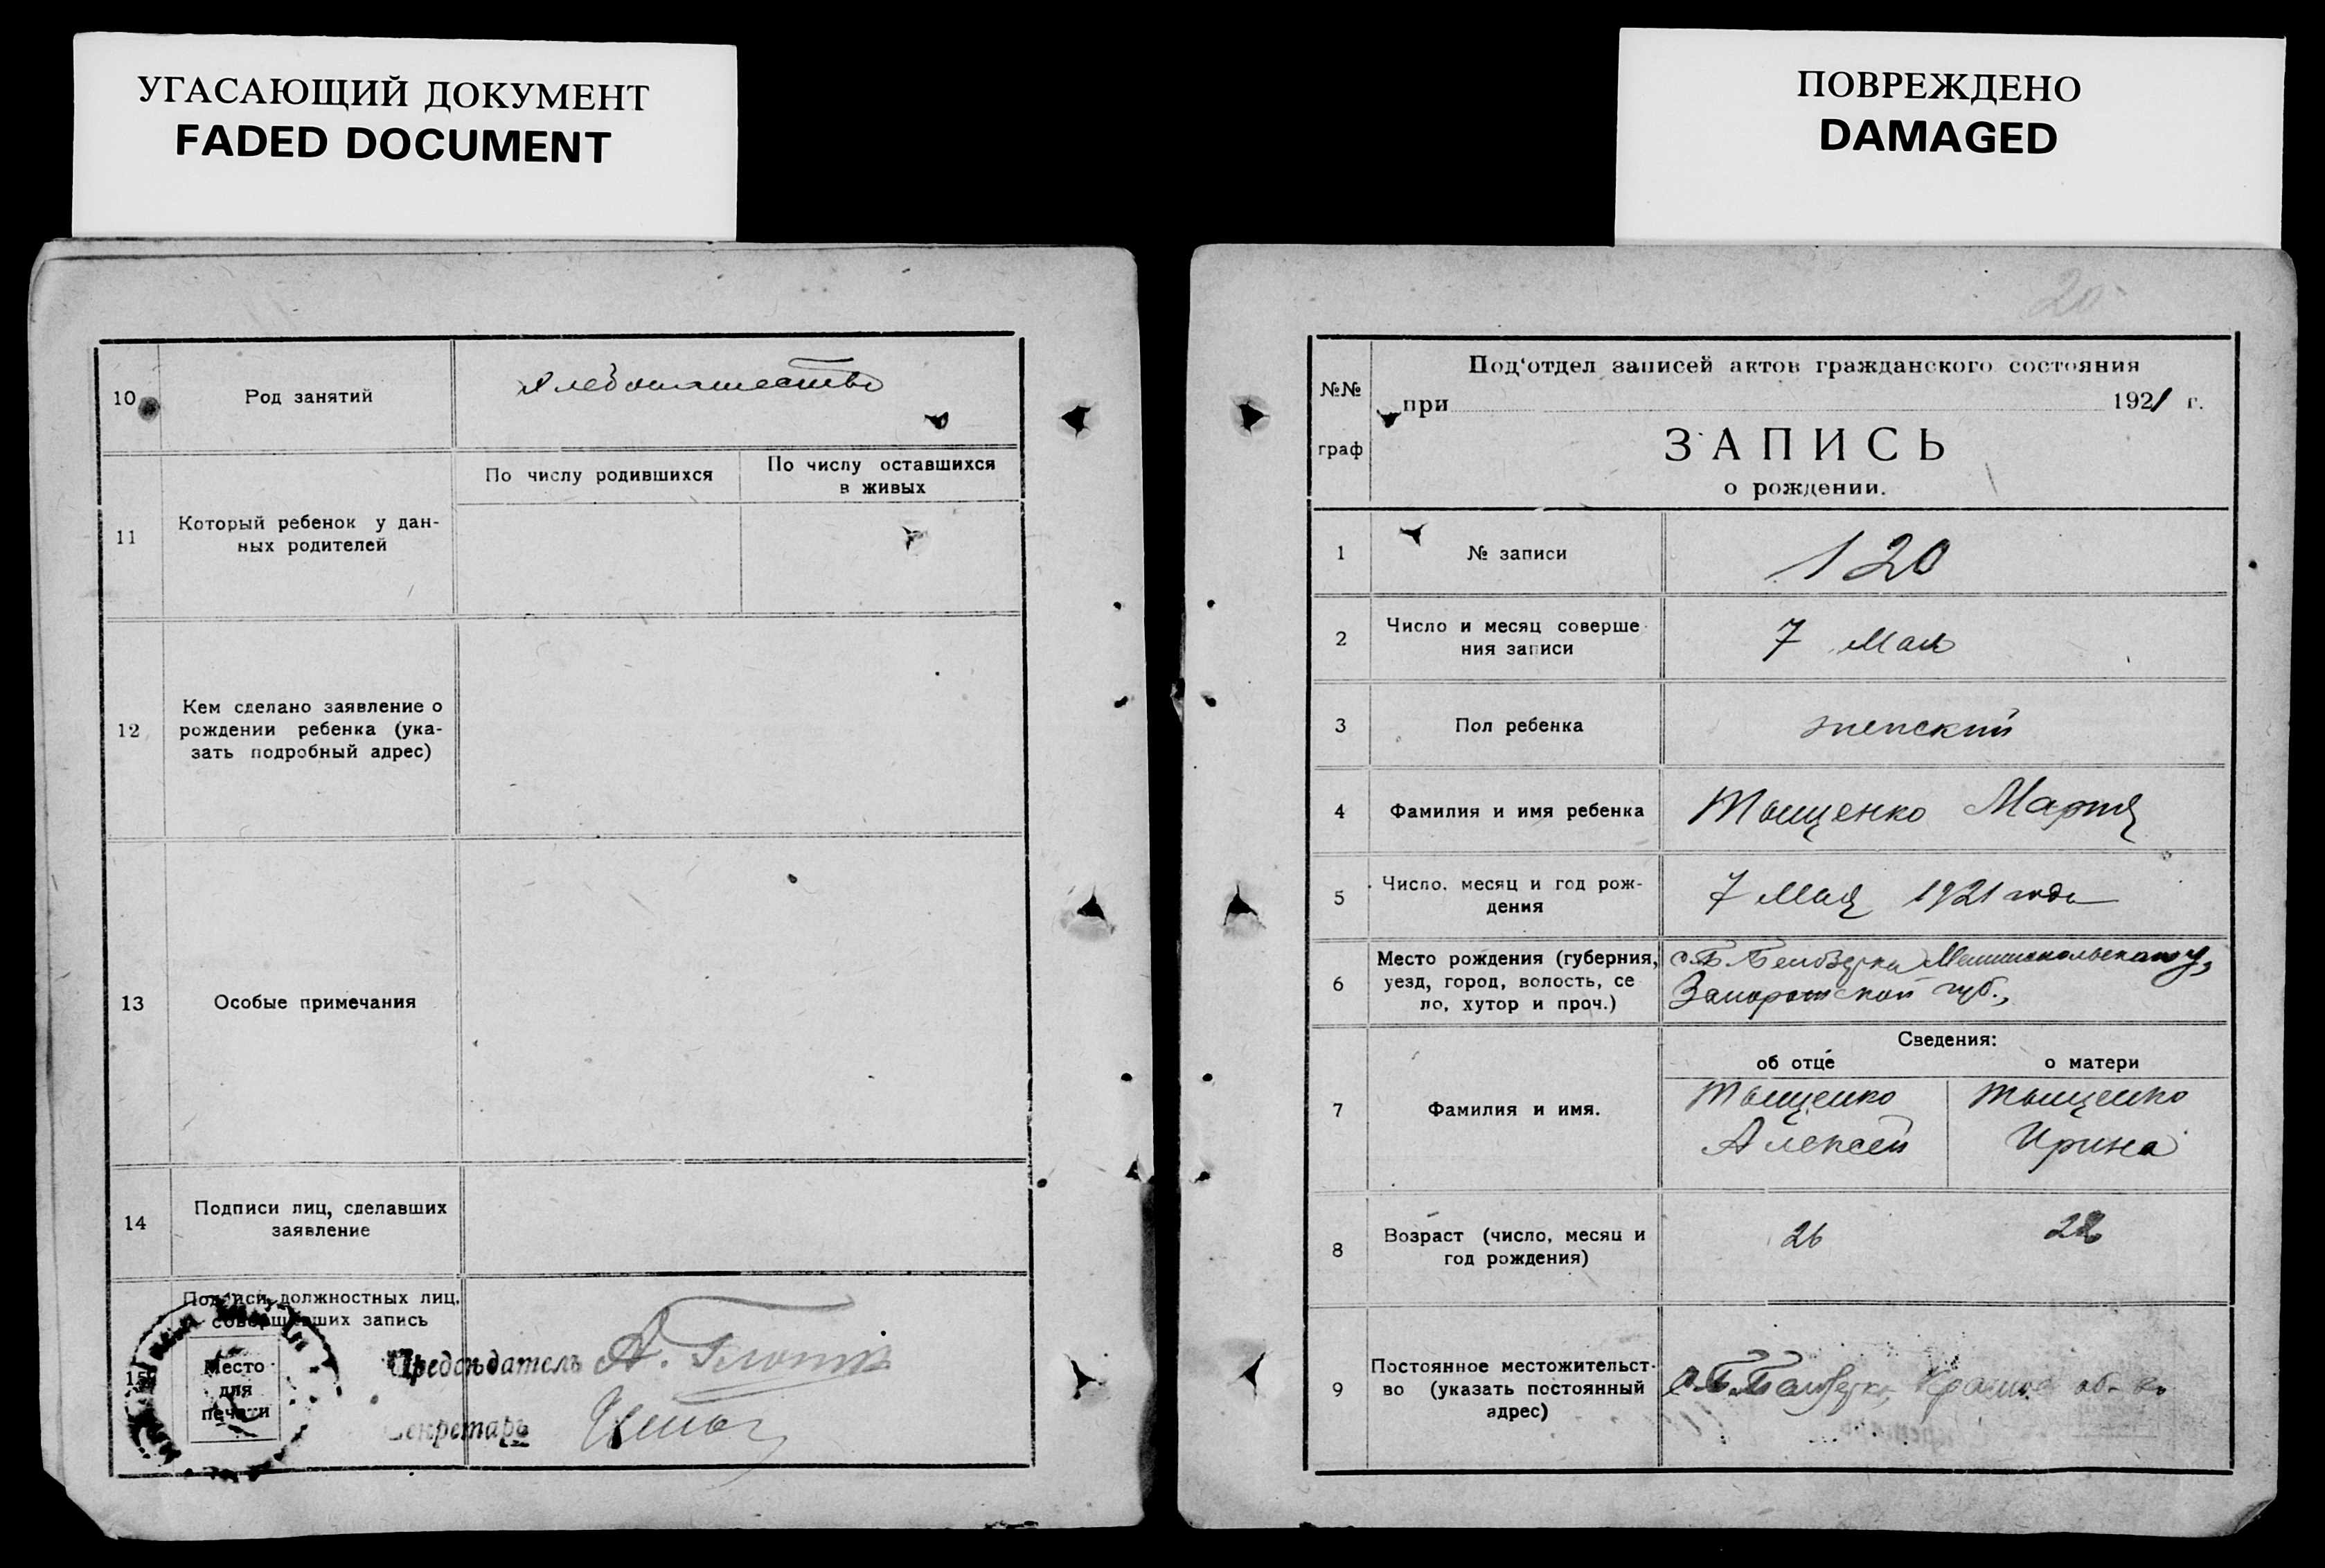 УГАСАЮЩИЙ ДОКУМЕНТ
FADED DOCUMENT
ПОВРЕЖДЕНО
DAMAGED
10
Род занятий
Хлебопашество
11
Который ребенок у дан-
ных родителей
По числу родившихся
По числу оставшихся
в живых
12
Кем сделано заявление о
рождении ребенка (ука-
зать подробный адрес)
13
Особые примечания
14
Подписи лиц, сделавших
заявление
15
Подписи должностных лиц,
совершавших запись
Место
для
печати
Председатель А.
Секретарь
20
№№
граф
Под'отдел записей актов гражданского состояния
при 1921 г.
ЗАПИСЬ
о рождении.
1
№ записи
120
2
Число и месяц соверше
ния записи
7 Мая
3
Пол ребенка
женский
4
Фамилия и имя ребенка
Тыщенко Мария
5
Число, месяц и год рож-
дения
7 Мая 1921 года
6
Место рождения (губерния,
уезд, город, волость, се
ло, хутор и проч.)
с. Б Белозерка Мелитопольского у,
Запорожской губ.,
Сведения:
об отце
о матери
7
Фамилия и имя.
Тыщенко
Алексей
Тыщенко
Ирина
8
Возраст (число, месяц и
год рождения)
26
22
9
Постоянное местожительст-
во (указать постоянный
адрес)
с. Б. Белозерка,